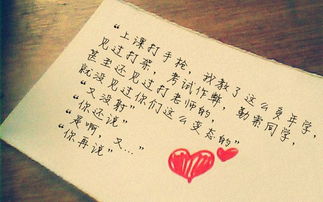 “上课打手枪，我教了这么多年学，
见过打架，考试作弊，勒索同学，
甚至还见过打老师的，
就没见过你们这么变态的”
“又没射”
“你还说”
“是啊，又…”
“你再说”